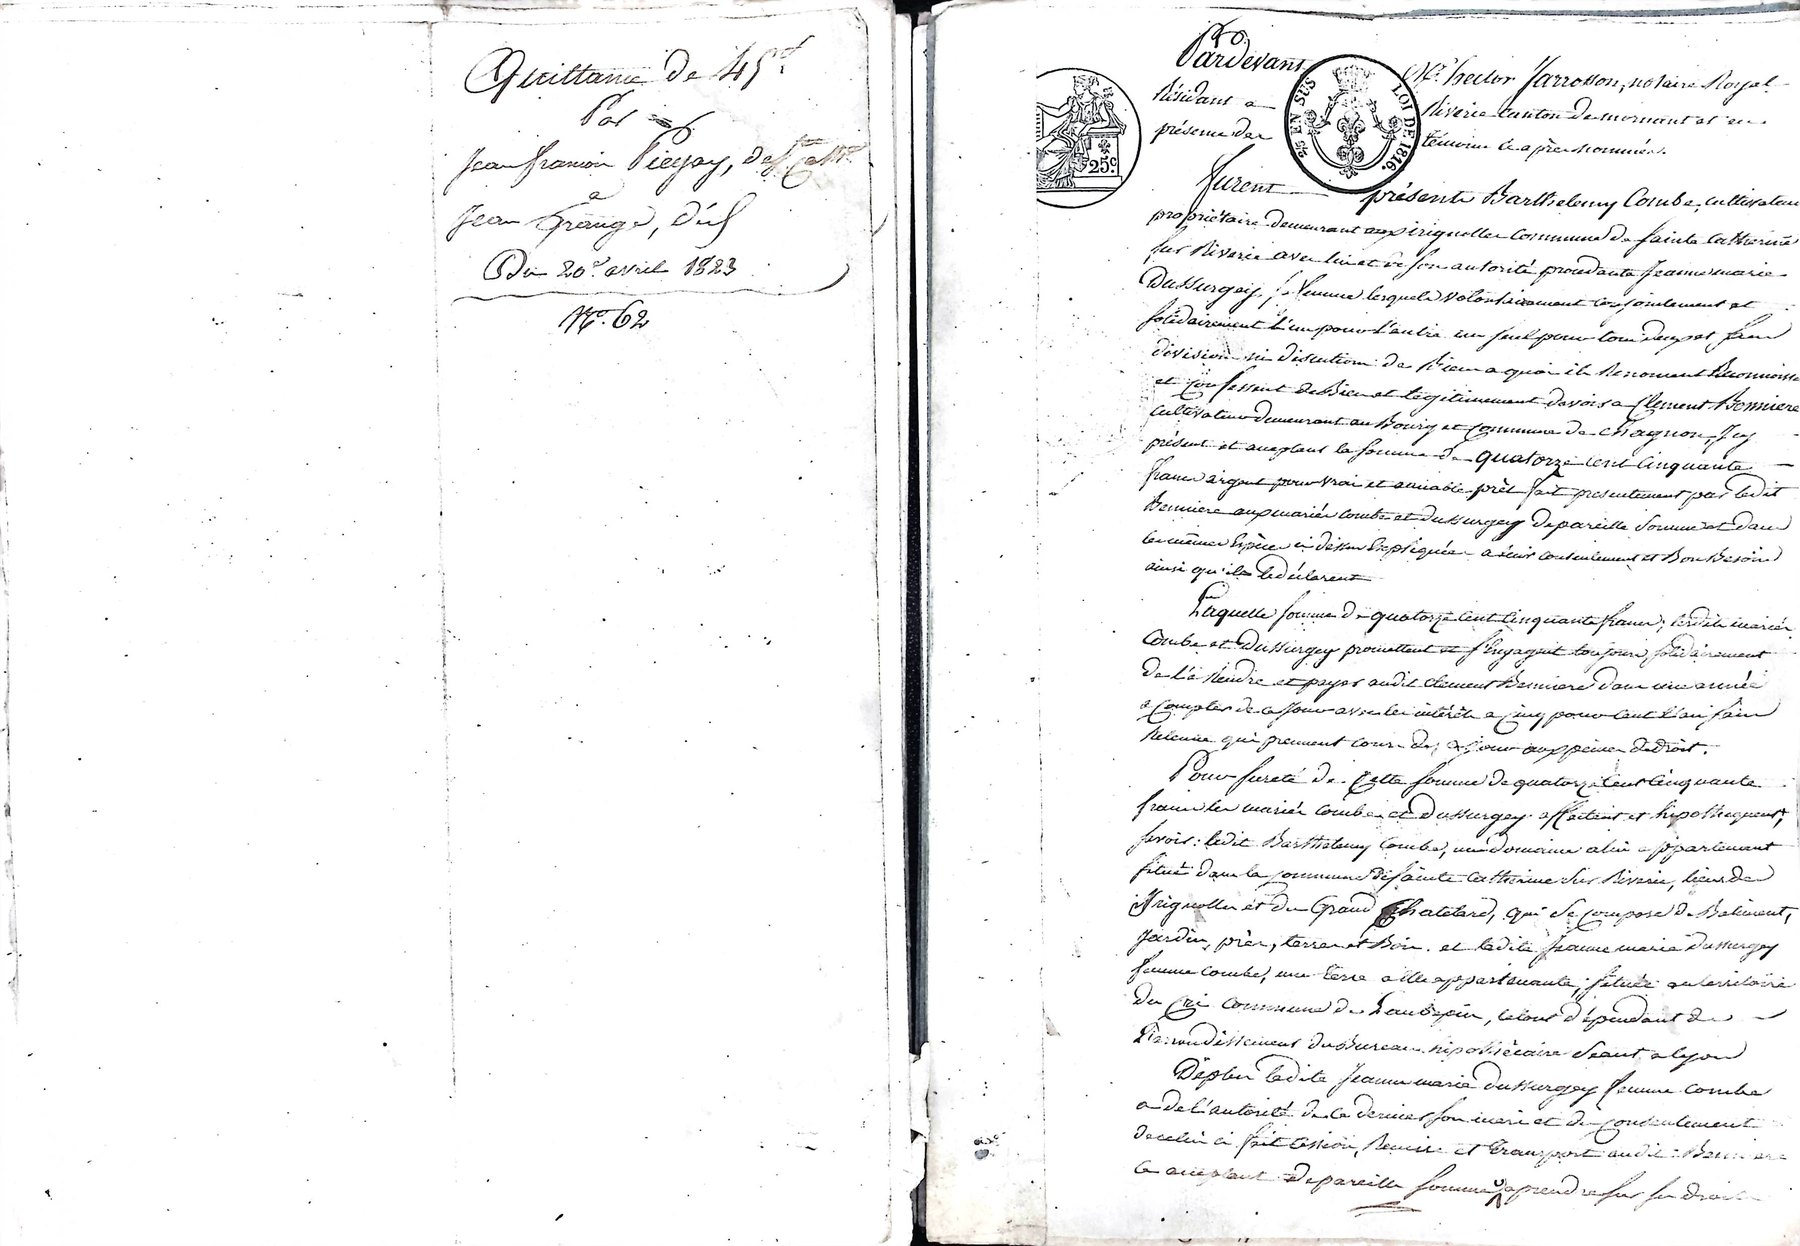 Quittance de 45 d.
Par
Jean françois Piegay, de Ste Cath.
a
Jean Grange, dud.
Du 20 avril 1823
No. 62
Pardevant Me. hector Jarrosson, notaire Royal
Résidant a Riverie canton de mornant et en
présence des témoins ci après nommés.
furent présents Barthelemy Combe, cultivateur
propriétaire demeurant aux pirignolles commune de sainte Catherine
sur Riverie avec lui et de son autorité procedante Jeanne marie
Dussurgey, sa femme lesquels volontairement conjointement et
solidairement l'un pour l'autre un seul pour tous deux et sans
division ni discution de biens a quoi ils Renoncent Reconnoissent
et Confessent de Bien et legitimement devoir a Clement Bonniere
cultivateur demeurant au Bourg et Commune de chagnon, Icy
présent et acceptant la somme de quatorze cent Cinquante
francs argent pour vrai et amiable prêt fait presentement par ledit
Bonniere aux mariés combe et dussurgey de pareille Somme et dans
les mêmes Espèces ci dessus Expliquées a leur contentement et Bon Besoin
ainsi qu'ils le déclarent
Laquelle somme de quatorze cent Cinquante francs, lesdits mariés
Combe et Dussurgey promettent et s'Engagent toujours solidairement
de la Rendre et payer audit Clement Bonniere dans une année
a Compter de ce Jour avec les intérêts a Cinq pour Cent l'an sans
Retenue qui prennent cours des ce Jour aux peines de droit.
Pour sureté de Cette somme de quatorze Cent Cinquante
francs les mariés combe et Dussurgey affectent et hipothequent,
savoir: ledit Barthelemy Combe, un domaine a lui appartenant
situé dans la Commune de sainte Catherine sur Riverie, lieux de
pirignolles et du Grand Chatelard, qui se Compose de Batiment,
Jardin, près, terres et Bois. et ladite Jeanne marie Dussurgey
femme combe, une terre a elle appartenante, située au territoire
du Commune de Laubepin, le tout dépendant de
l'arrondissement du Bureau hipothécaire Seant a lyon
Déplus ladite Jeanne marie Dussurgey femme combe
a de l'autorité de ce dernier son mari et du Consentement
de celui ci fait Cession, Remise et transport audit Bonniere
ce acceptant de pareille somme a prendre sur ses droits
25 EN SUS LOI DE 1816.
25c